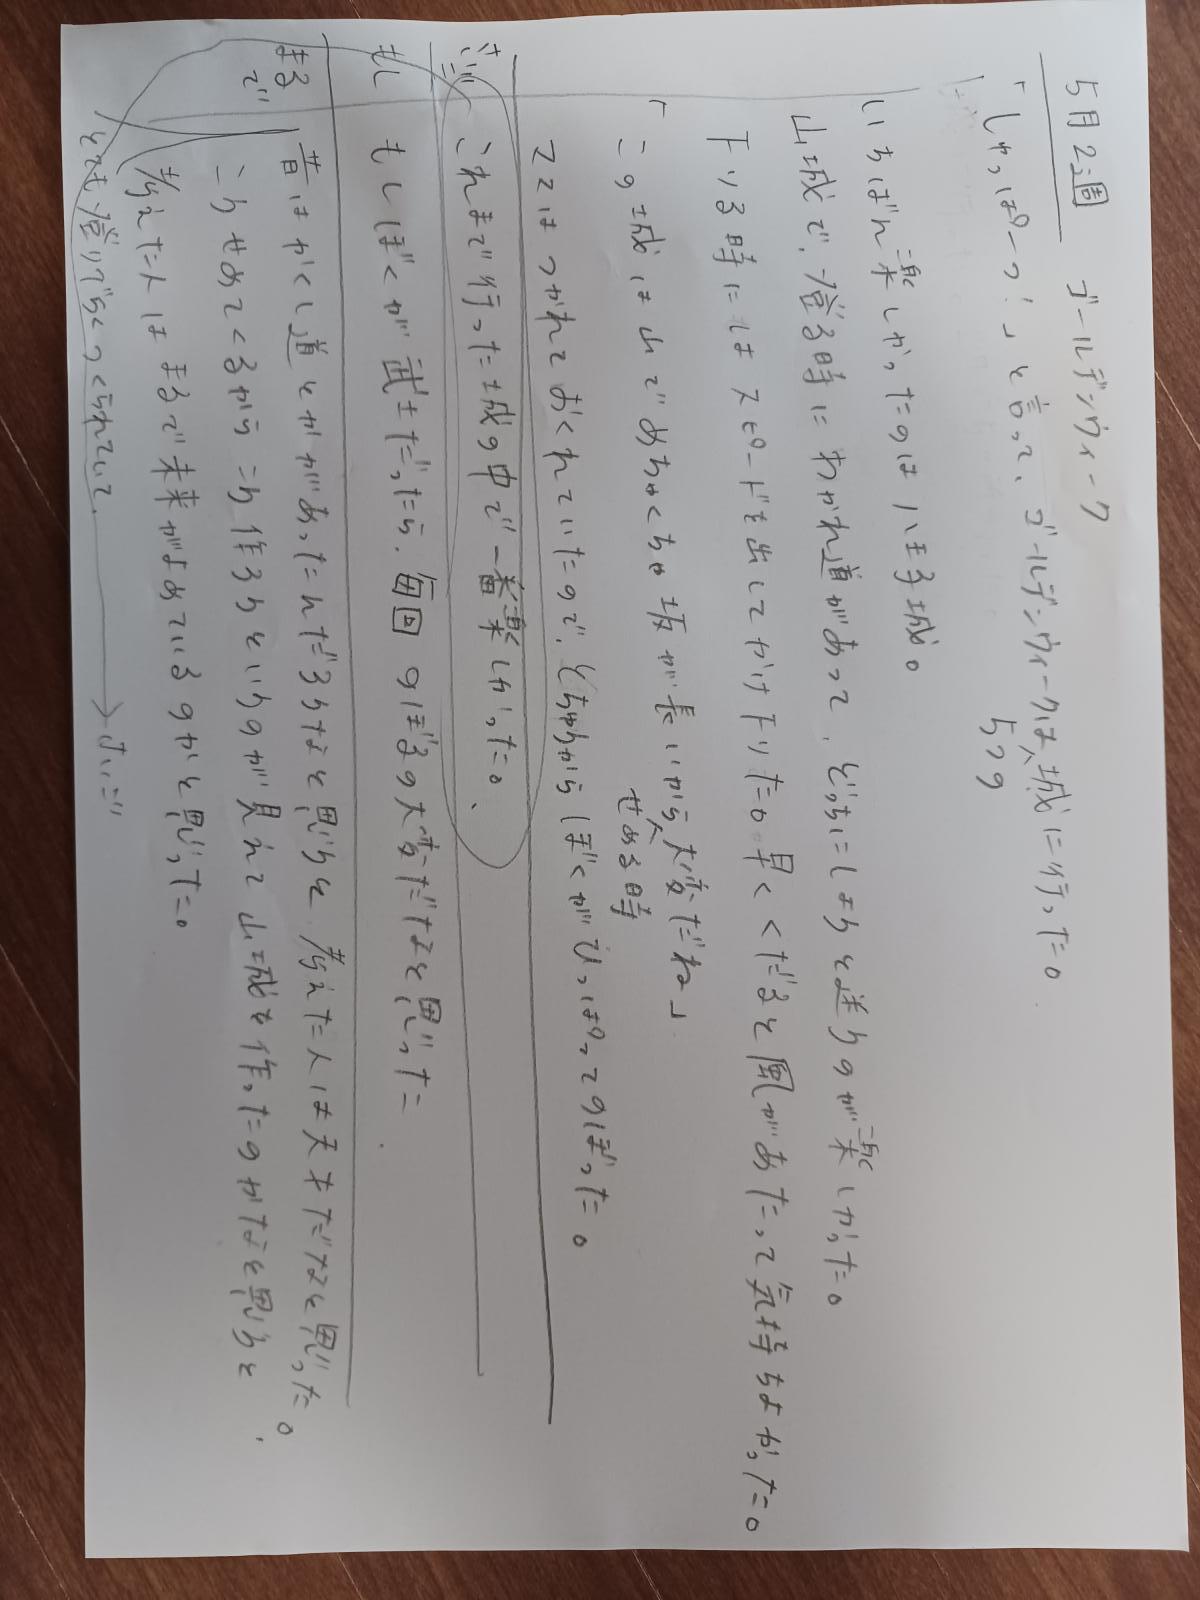 5月2週 ゴールデンウィーク
「しゅっぱーつ!」と言って、ゴールデンウィークは城に行った。
5つの
いちばん楽しかったのは八王子城。
山城で、登る時にわかれ道があって、どっちにしようと迷うのが楽しかった。
下りる時にはスピードを出してかけ下りた。早くくだると風があたって気持ちよかった。
「この城は山でめちゃくちゃ坂が長いから大変だね」
せめる時
ママはつかれておくれていたので、とちゅうからぼくがひっぱってのぼった。
さいご
これまで行った城の中で一番楽しかった。、
もし
もしぼくが武士だったら、毎回のぼるの大変だなと思った
まるで
昔はかくし道とかがあったんだろうなと思うと、考えた人は天才だなと思った。
こうせめてくるからこう作ろうというのが見えて山城を作ったのかなと思うと、
考えた人はまるで未来がよめているのかと思った。
とても登りづらくつくられていて、
さいご